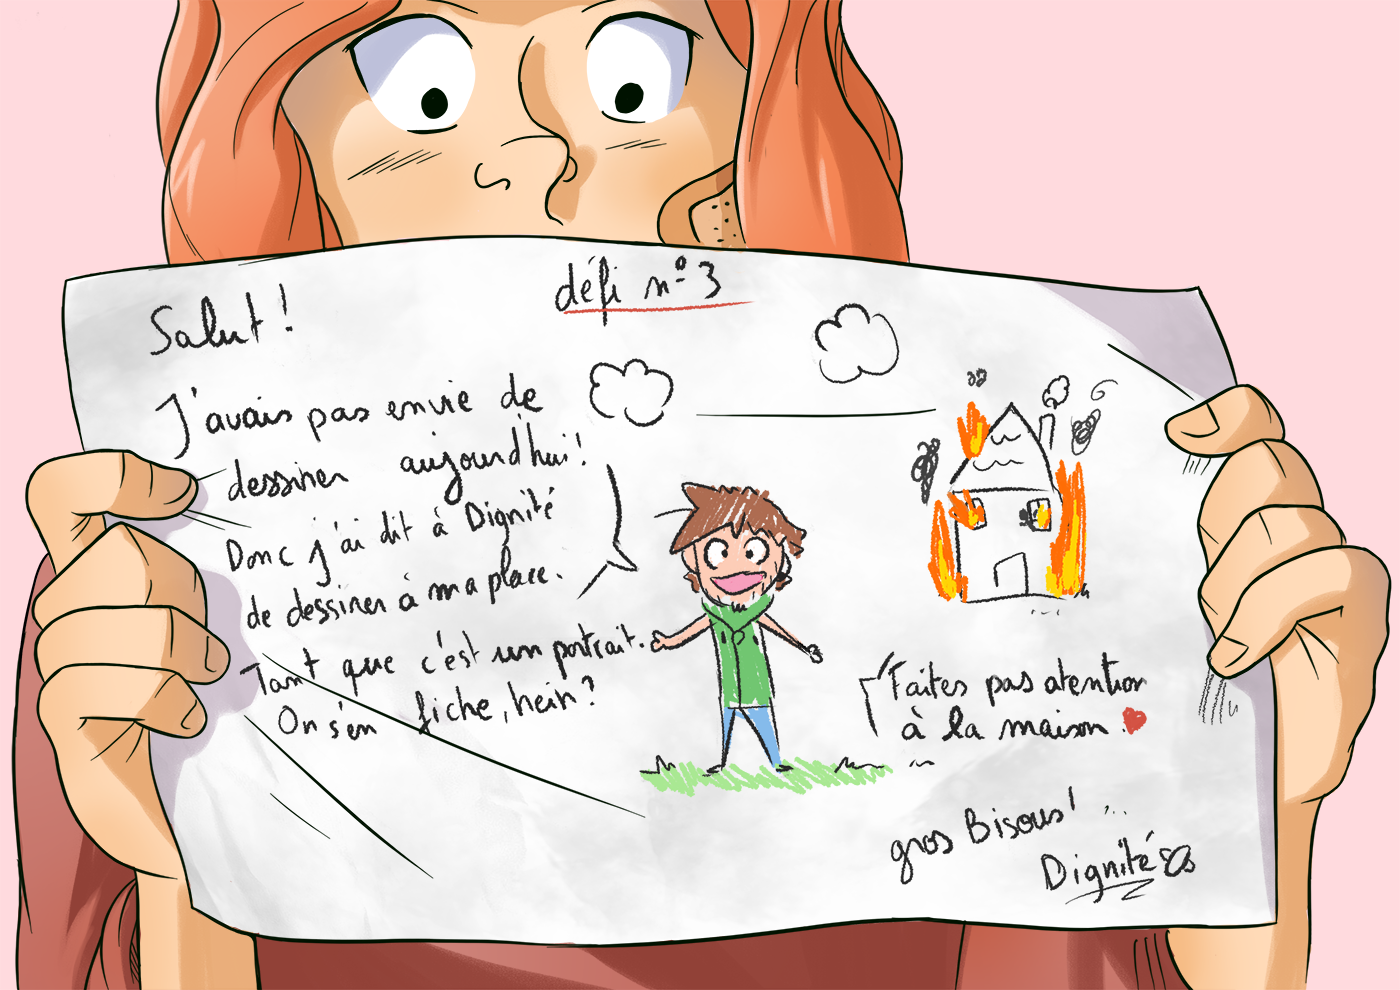 défi n°3
Salut !
J'avais pas envie de
dessiner aujourd'hui !
Donc j'ai dit à Dignité
de dessiner à ma place.
Tant que c'est un portrait.
On s'en fiche, hein ?
Faites pas atention
à la maison.
gros Bisous !
Dignité